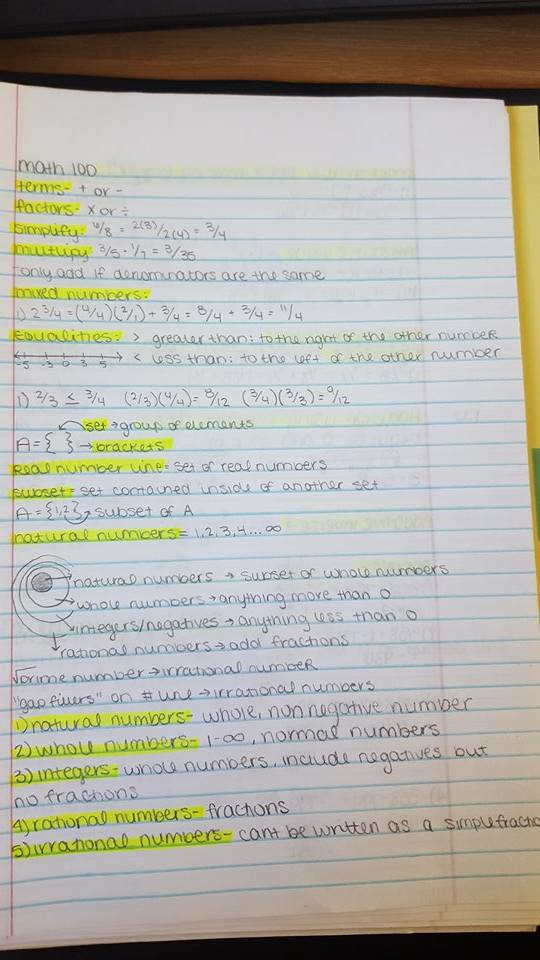 math 100
terms- + or -
factors- x or ÷
simplify: 6/8 = 2(3)/2(4) = 3/4
multiply: 3/5 · 1/7 = 3/35
- only add if denominators are the same
mixed numbers:
1) 2 3/4 = (4/4)(2/1) + 3/4 = 8/4 + 3/4 = 11/4
Equalities: > greater than: to the right of the other number
-5 -3 0 3 5 < less than: to the left of the other number
1) 2/3 ≤ 3/4 (2/3)(4/4) = 8/12 (3/4)(3/3) = 9/12
set → group of elements
A = { } → brackets
Real number line = set of real numbers
subset = set contained inside of another set
A = {1,2} → subset of A
natural numbers = 1, 2, 3, 4 ... ∞
natural numbers → subset of whole numbers
→ whole numbers → anything more than 0
→ integers/negatives → anything less than 0
rational numbers → add fractions
√prime number → irrational number
"gap fillers" on # line → irrational numbers
1) natural numbers- whole, non negative number
2) whole numbers- 1-∞, normal numbers
3) integers- whole numbers, include negatives but
no fractions
4) rational numbers- fractions
5) irrational numbers- cant be written as a simple fractio